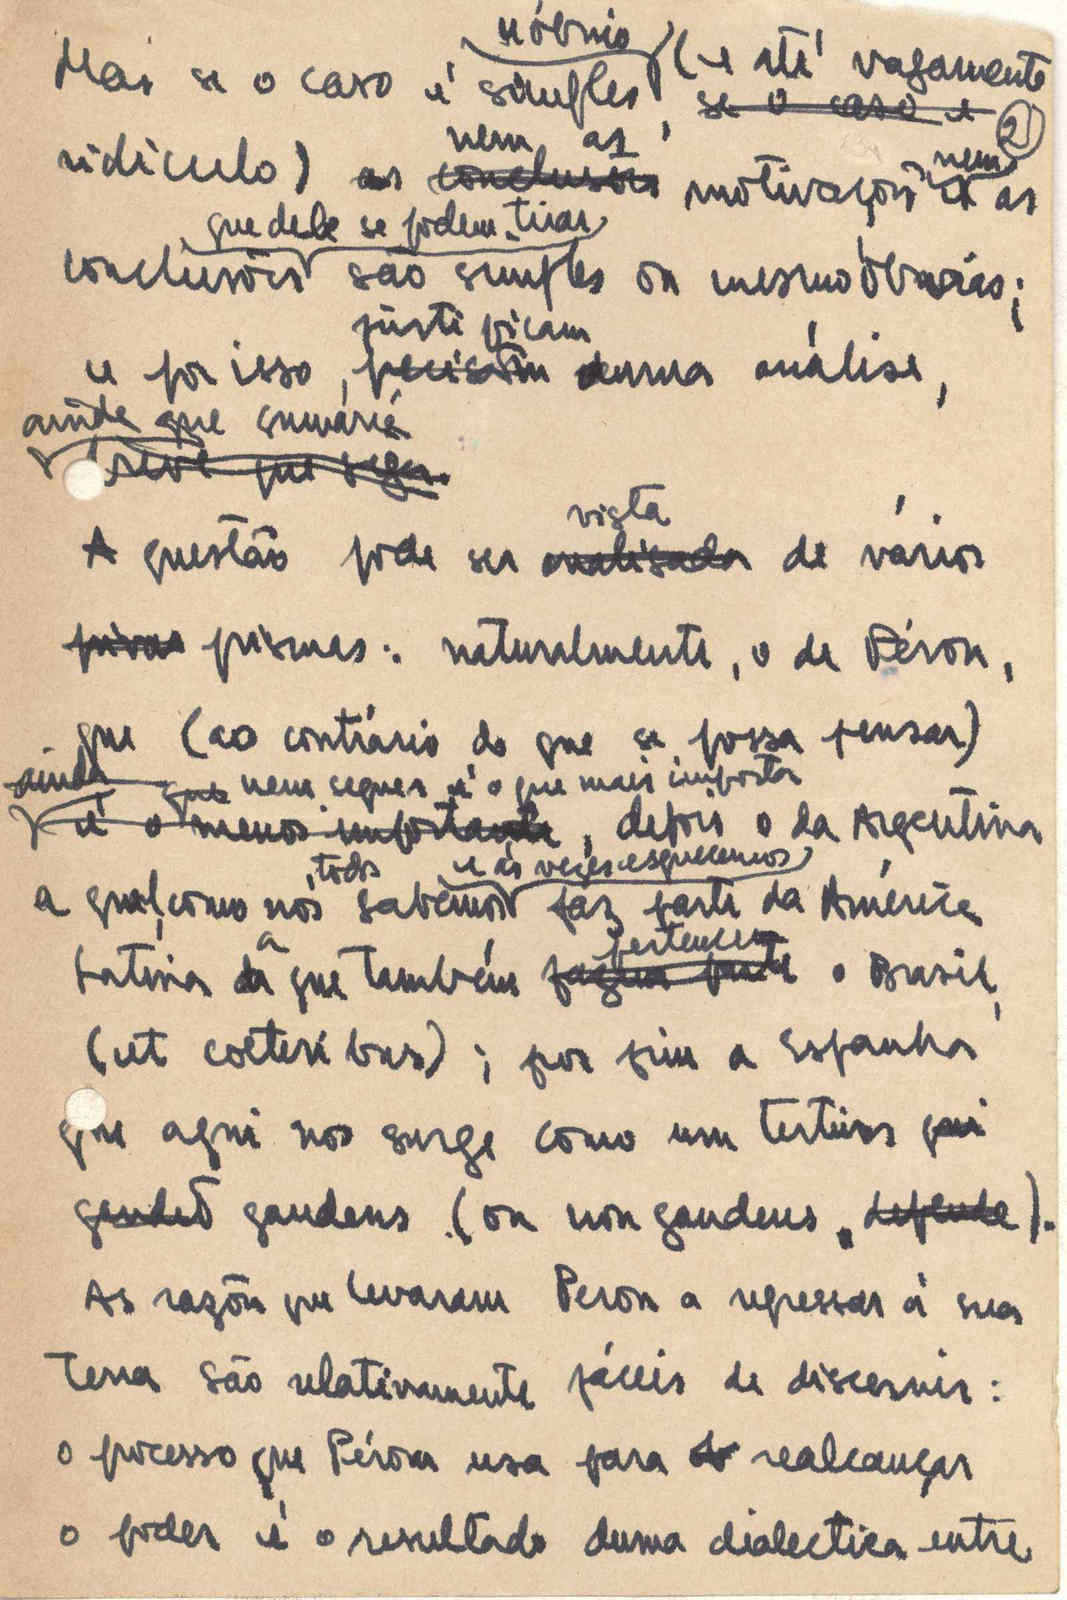 sóbrio
Mas se o caso é simples (e até vagamente
se o caso é
2
nem as nem
ridículo) as conclusões motivações as
que dele se podem tirar
conclusões são simples ou mesmo óbvias;
justificam
e por isso, precisam duma análise,
ainda que sumária
breve que seja.
vista
A questão pode ser analisada de vários
prismas: naturalmente, o de Péron,
que (ao contrário do que se possa pensar)
ainda que nem sequer é o que mais importa
é o menos importante, depois o da Argentina
todos e às vezes esquecemos
a qual, como nós sabemos faz parte da América
a pertence
Latina da que também fazem parte o Brasil,
(et coeteribus); por fim a Espanha
que aqui nos surge como um tertius
gaudet gaudens (ou non gaudens, defende).
As razões que levaram Peron a regressar à sua
terra são relativamente fáceis de discernir:
o processo que Péron usa para realcançar
o poder é o resultado duma dialectica entre